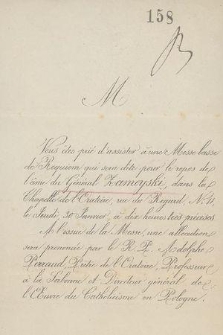 158
M
Vous êtes prié d'assister à une Messe basse
de Requiem qui sera dite pour le repos de
l'âme du Général Zamoyski, dans la
Chapelle de l'Oratoire, rue du Regard, N° 11,
le Jeudi, 30 Janvier, à dix heures très précises.
A l'issue de la Messe, une allocution
sera prononcée par le R. P. Adolphe
Perraud, Prêtre de l'Oratoire, Professeur
à la Sorbonne et Directeur général de
l'Œuvre du Catholicisme en Pologne.